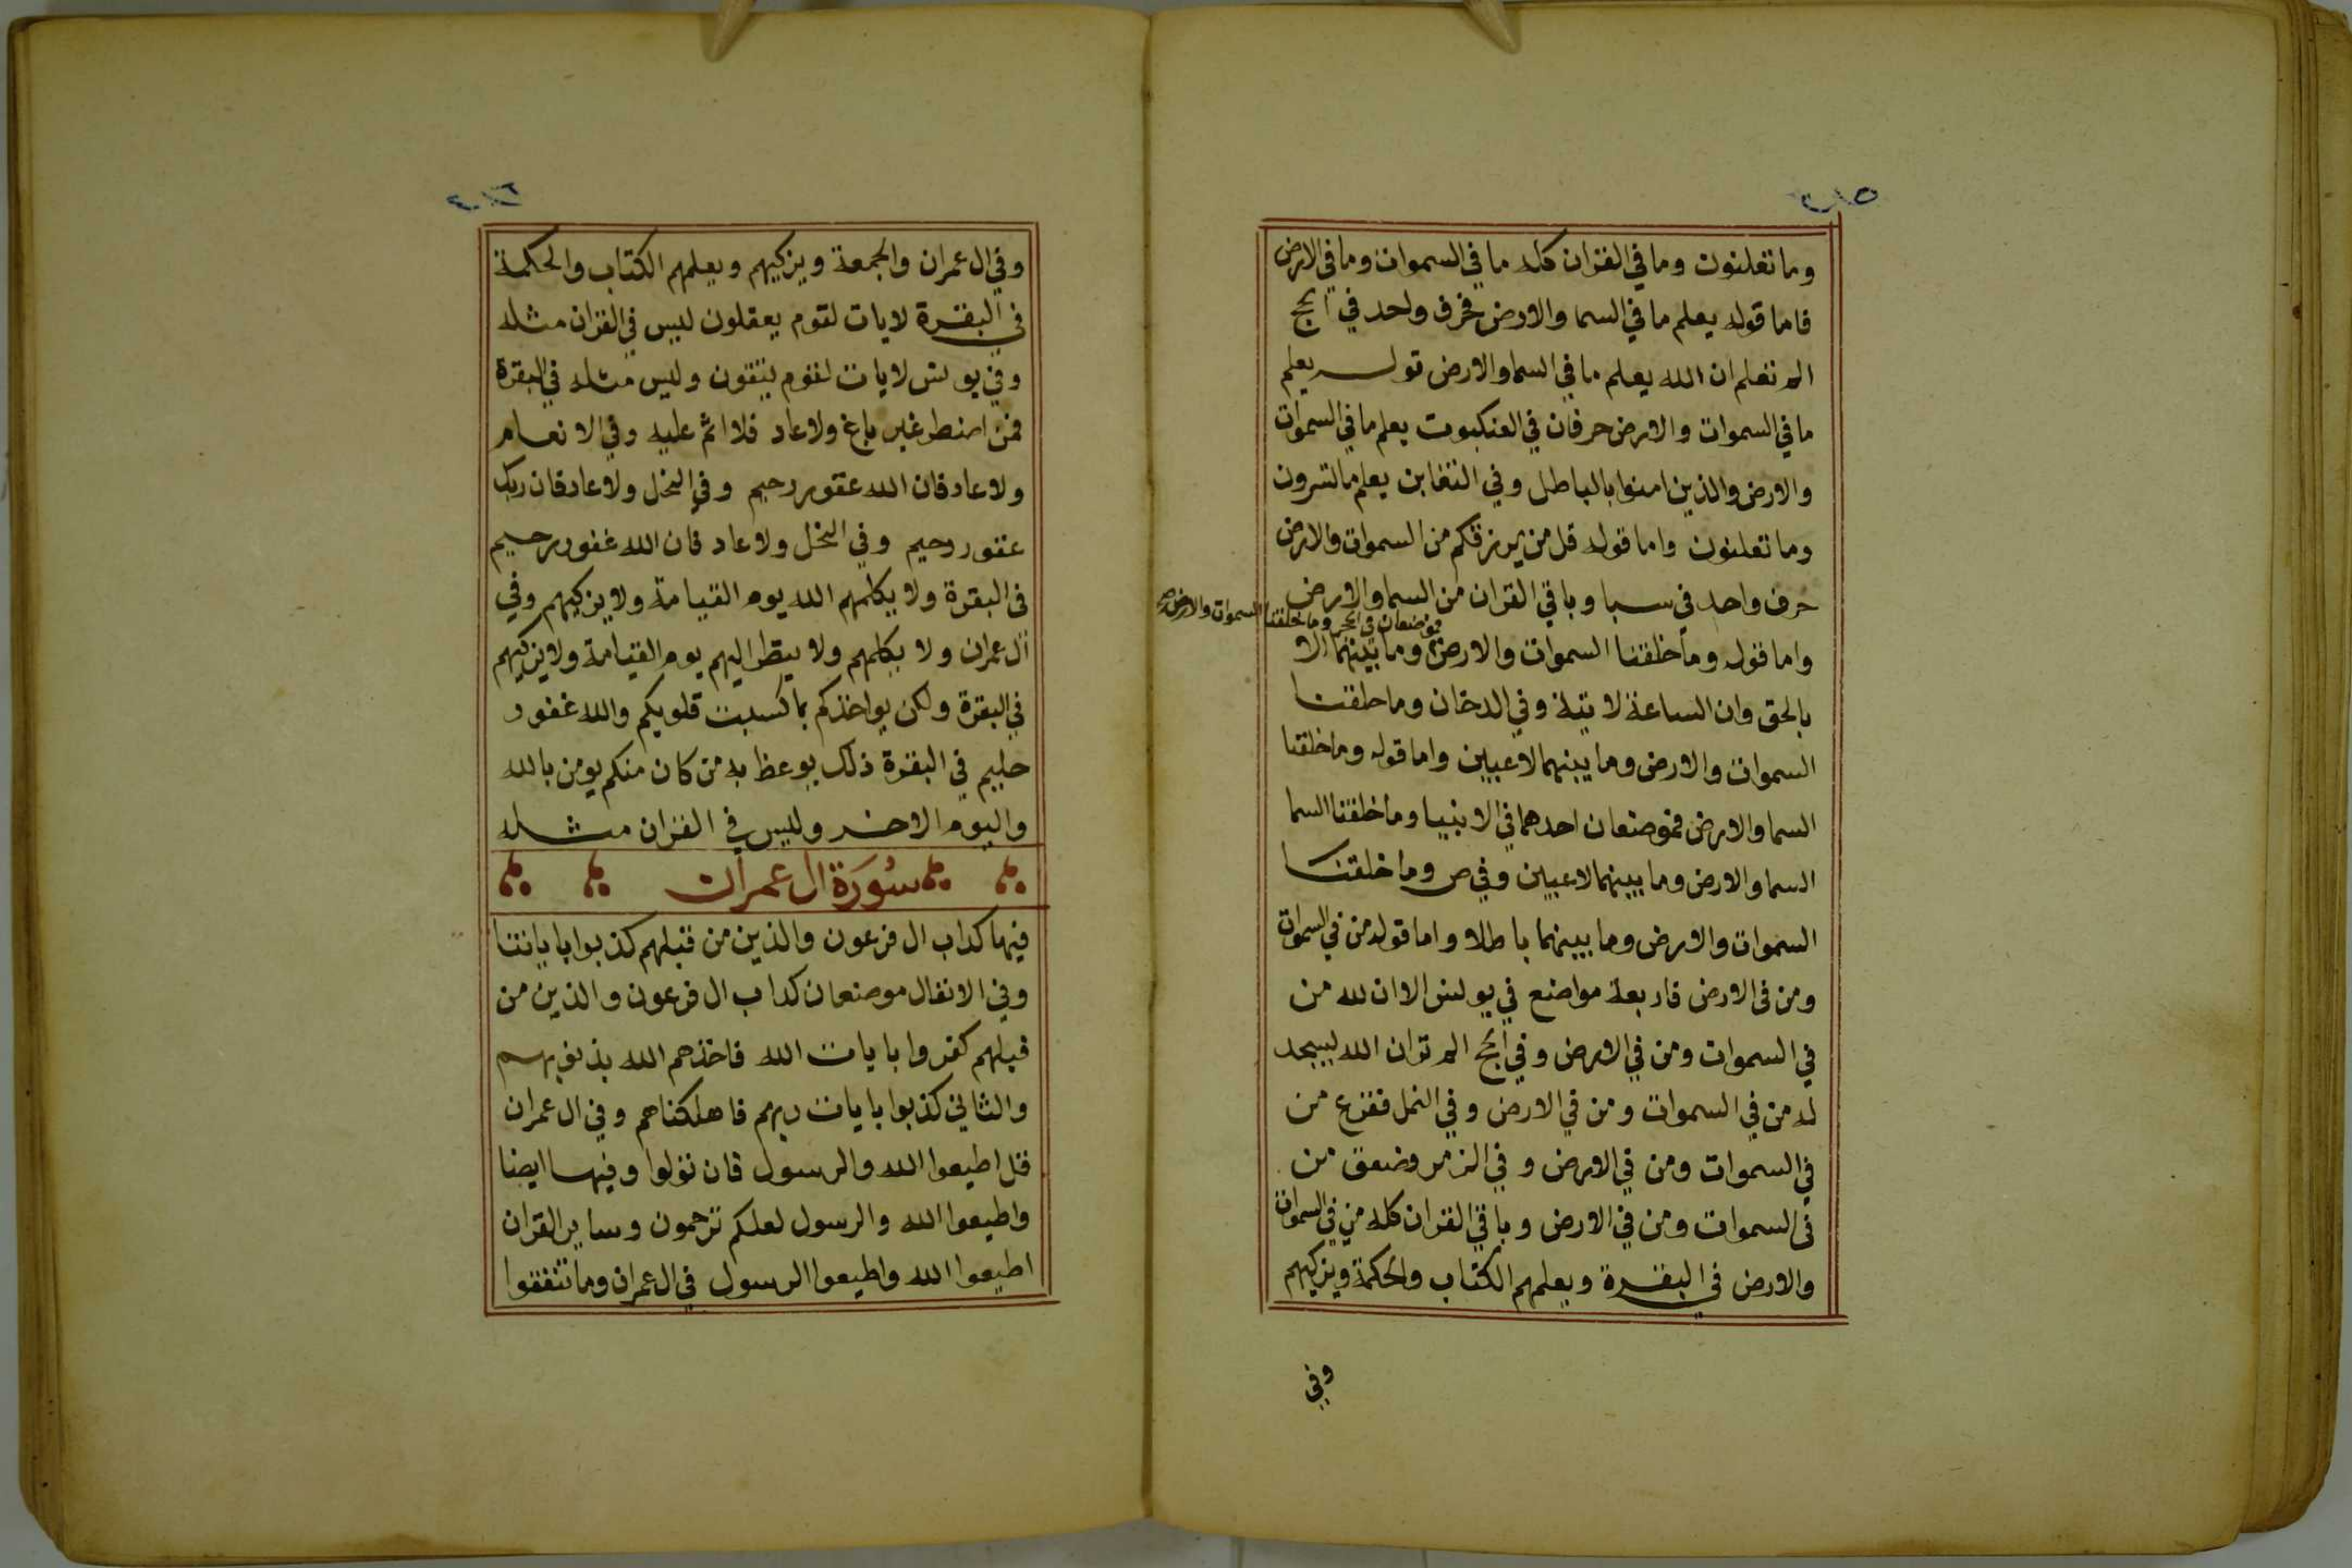 وما تعلنون وما في القران كله ما في السموات وما في الارض
فاما قوله يعلم ما في السما والارض فحرف واحد في الحج
الم تعلم ان الله يعلم ما في السما والارض قوله يعلم
ما في السموات والارض حرفان في العنكبوت يعلم ما في السموات
والارض والذين امنوا بالباطل وفي التغابن يعلم ما تسرون
وما تعلنون واما قوله قل من يرزقكم من السموات والارض
حرف واحد في سبا وباقي القران من السما والارض
واما قوله وما خلقنا السموات والارض وما بينهما الا
فموضعان في الحجر وما خلقنا السموات والارض
بالحق وان الساعة لاتية وفي الدخان وما خلقنا
السموات والارض وما بينهما لاعبين واما قوله وما خلقنا
السما والارض فموضعان احدهما في الانبيا وما خلقنا السما
السما والارض وما بينهما لاعبين وفي ص وما خلقنا
السموات والارض وما بينهما باطلا واما قوله من في السموات
ومن في الارض فاربعة مواضع في يونس الا ان لله من
في السموات ومن في الارض وفي الحج الم تر ان الله يسجد
له من في السموات ومن في الارض وفي النمل ففزع من
في السموات ومن في الارض وفي الزمر وضعق من
في السموات ومن في الارض وباقي القران كله من في السموات
والارض في البقرة ويعلمهم الكتاب والحكمة ويزكيهم
وفي
وفي ال عمران والجمعة ويزكيهم ويعلمهم الكتاب والحكمة
في البقرة لايات لقوم يعقلون ليس في القران مثله
وفي يونس لايات لقوم يتقون وليس مثله في البقرة
فمن اضطر غير باغ ولا عاد فلا اثم عليه وفي الانعام
ولا عاد فان الله غفور رحيم وفي النحل ولا عاد فان ربك
غفور رحيم وفي النحل ولا عاد فان الله غفور رحيم
في البقرة ولا يكلمهم الله يوم القيامة ولا يزكيهم وفي
ال عمران ولا يكلمهم ولا ينظر اليهم يوم القيامة ولا يزكيهم
في البقرة ولكن يواخذكم بما كسبت قلوبكم والله غفور
حليم في البقرة ذلك يوعظ به من كان منكم يومن بالله
واليوم الاخر وليس في القران مثله
سُورَة ال عمران
فيها كداب ال فرعون والذين من قبلهم كذبوا باياتنا
وفي الانفال موضعان كداب ال فرعون والذين من
قبلهم كفروا بايات الله فاخذهم الله بذنوبهم
والثاني كذبوا بايات ربهم فاهلكناهم وفي ال عمران
قل اطيعوا الله والرسول فان تولوا وفيها ايضا
واطيعوا الله والرسول لعلكم ترحمون وساير القران
اطيعوا الله واطيعوا الرسول في ال عمران وما تنفقوا